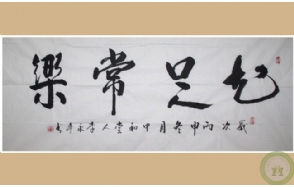 知足常樂
歲次丙申冬月中和堂人李永年书